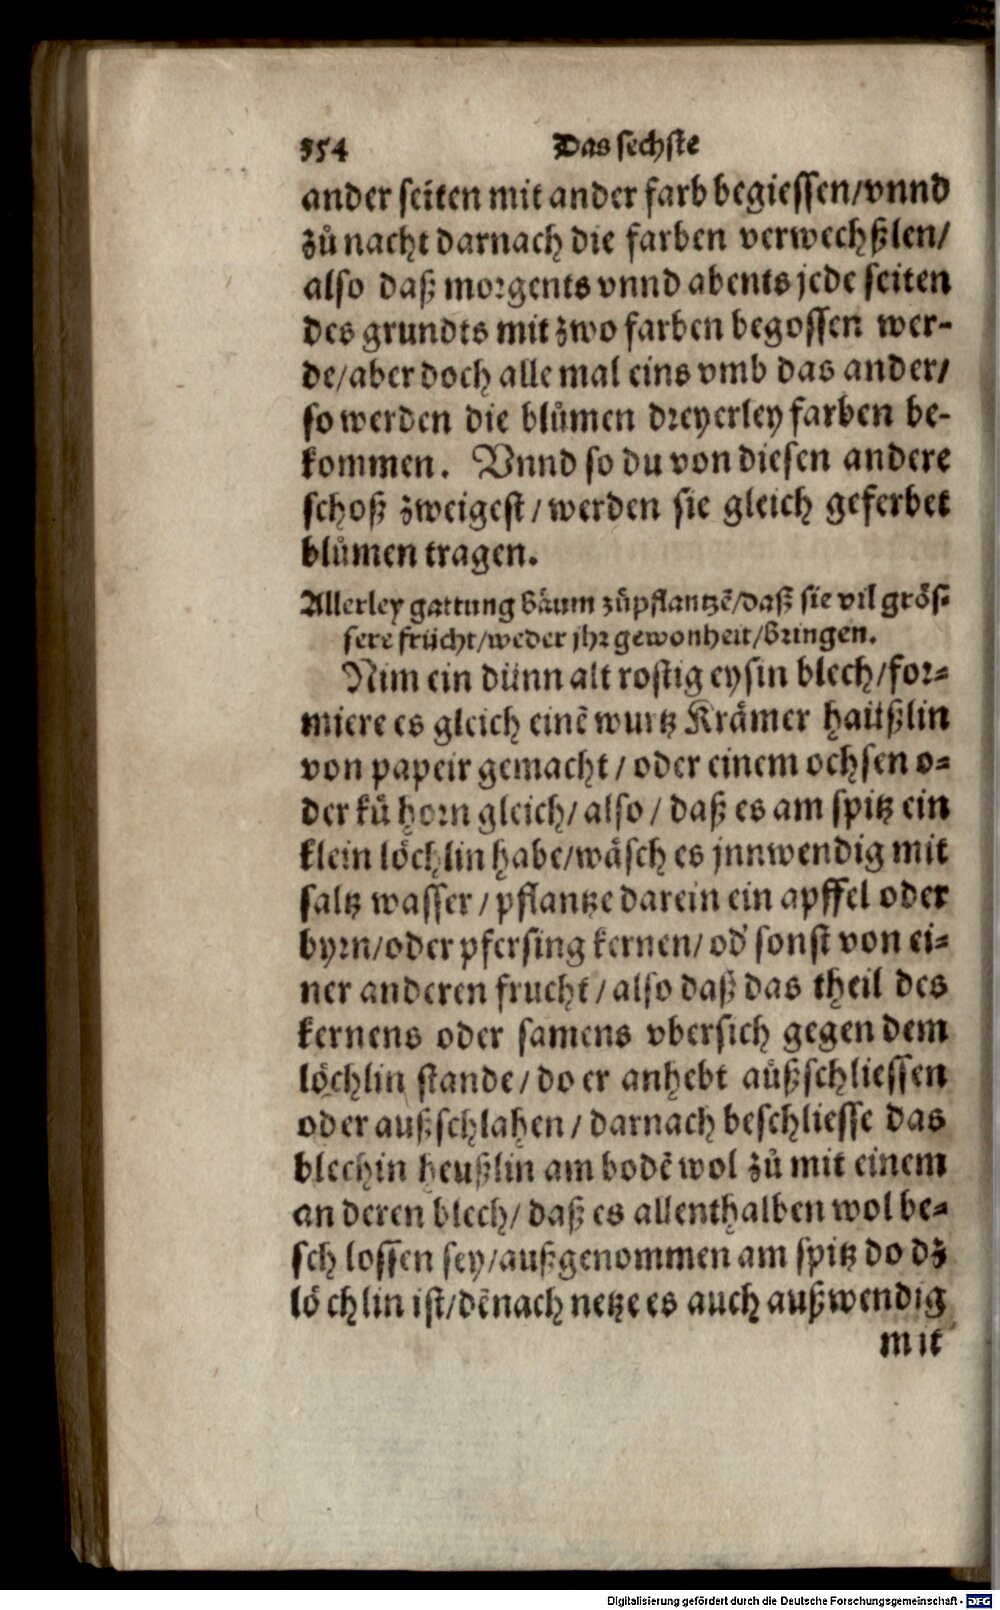 354 Das sechste
ander seiten mit ander farb begiessen/vnnd
zů nacht darnach die farben verwechßlen/
also daß morgents vnnd abents jede seiten
des grundts mit zwo farben begossen wer-
de/aber doch alle mal eins vmb das ander/
so werden die blůmen dreyerley farben be-
kommen. Vnnd so du von diesen andere
schoß zweigest/werden sie gleich geferbet
blůmen tragen.
Allerley gattung bäum zůpflantzē/daß sie vil grös-
sere frücht/weder jhr gewonheit/bringen.
Nim ein dünn alt rostig eysin blech/for-
miere es gleich einē wurtz Krämer haüßlin
von papeir gemacht/oder einem ochsen o-
der ků horn gleich/also/daß es am spitz ein
klein löchlin habe/wäsch es jnnwendig mit
saltz wasser/pflantze darein ein apffel oder
byrn/oder pfersing kernen/od' sonst von ei-
ner anderen frucht/also daß das theil des
kernens oder samens vbersich gegen dem
löchlin stande/do er anhebt aůßschliessen
oder außschlahen/darnach beschliesse das
blechin heußlin am bodē wol zů mit einem
anderen blech/daß es allenthalben wol be-
schlossen sey/außgenommen am spitz do dz
löchlin ist/dēnach netze es auch außwendig
mit
Digitalisierung gefördert durch die Deutsche Forschungsgemeinschaft - DFG